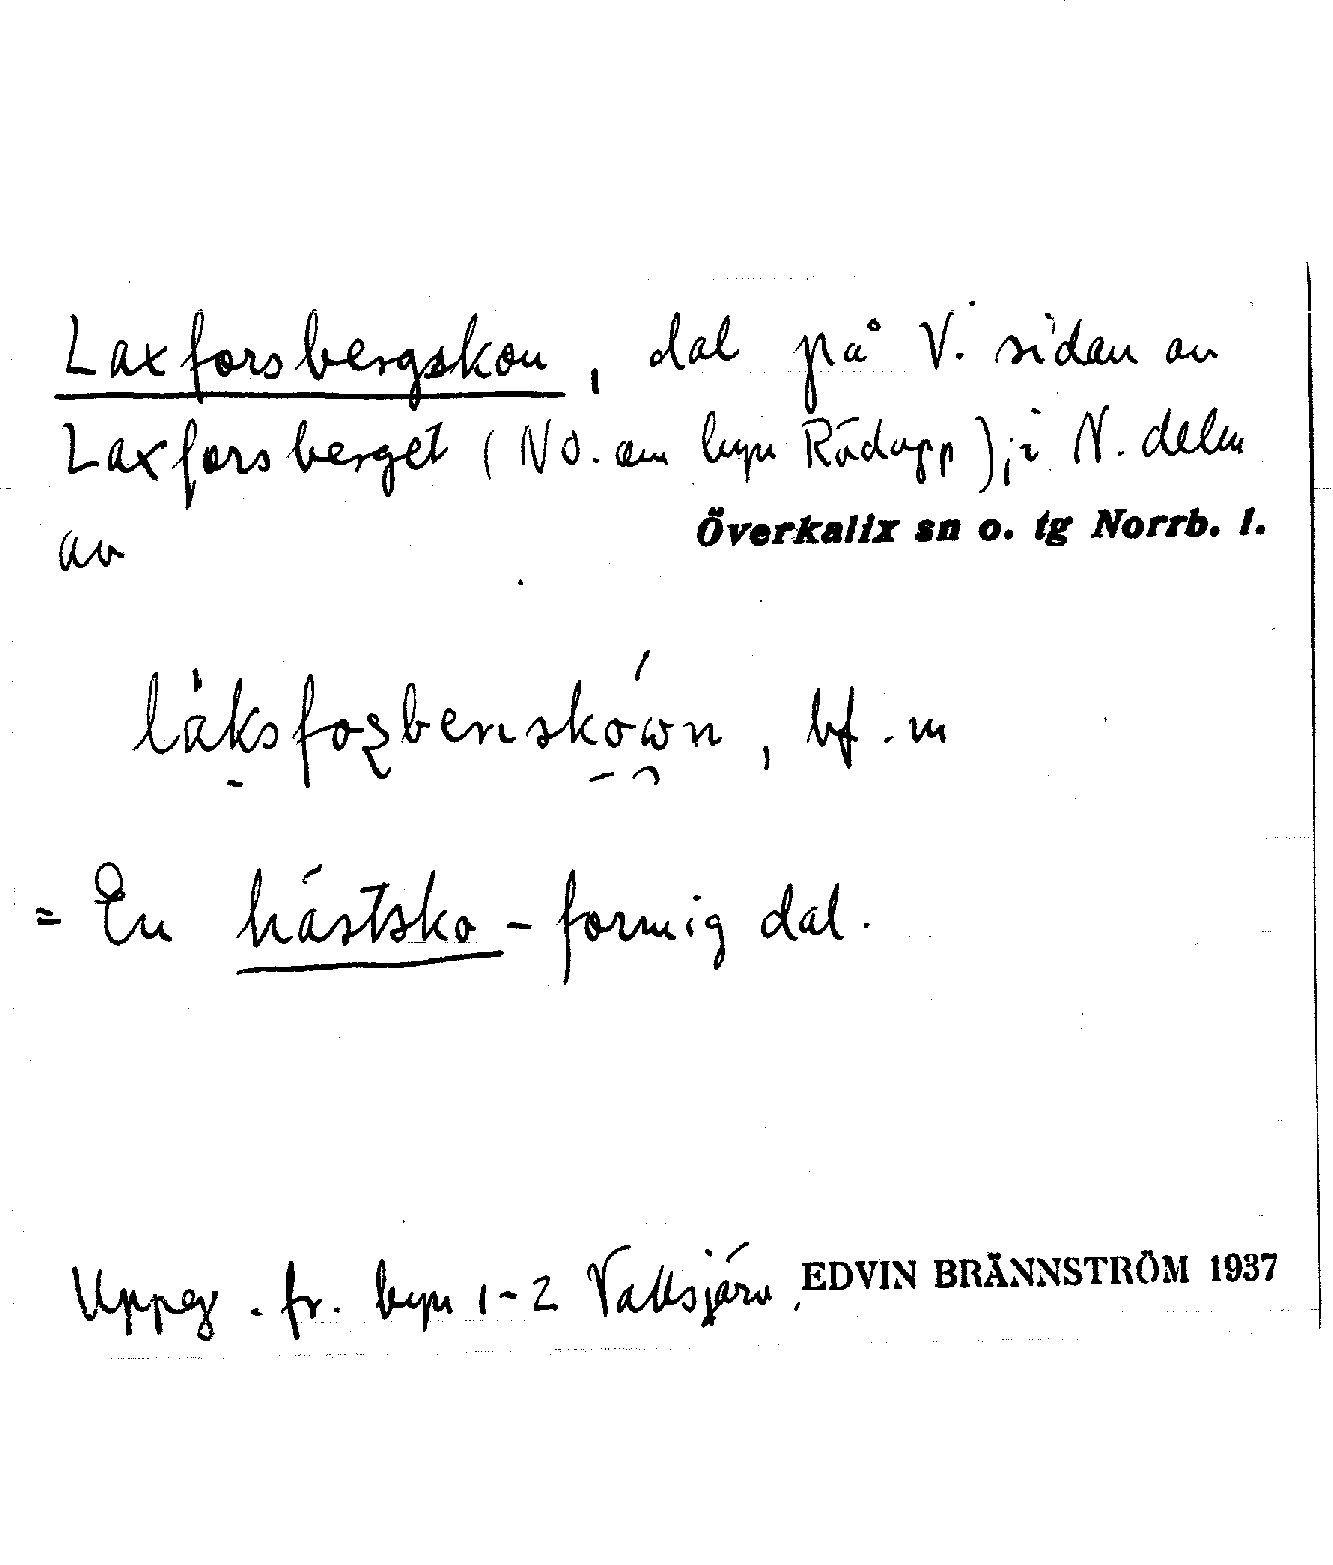 Laxforsbergskon, dal på V. sidan av
Laxforsberget (NO. om byn Rödupp), i N. delen
av Överkalix sn o. tg Norrb. l.
bf. m
= En hästsko-formig dal.
Uppg. fr. byn 1-2 Vallsjärv, EDVIN BRÄNNSTRÖM 1937